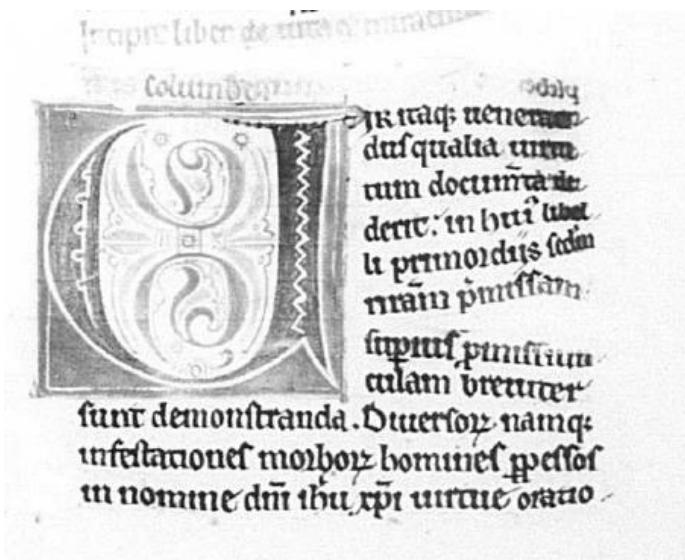 Incipit liber de uita et
columb
UIR itaq; ueneran
dus qualia uirtu
tum docum̄ta de
derit: in hui᾽ libel
li primordijs secdm
nr̄am p̄missam
supius p̱missiun
culam breuiter
sunt demonstranda. Diuersoꝝ namq:
infestationes morboꝝ homines ꝑpessos
in nomine dn̄i ih̄u xp̄i uirtue oratio